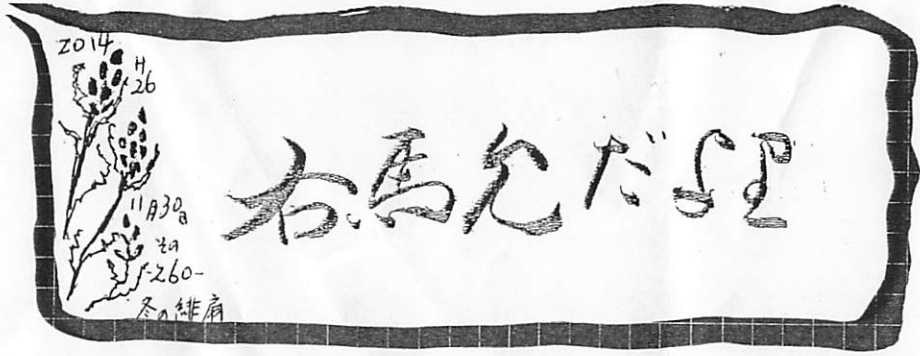 2014
H
26
11月30日
その
-260-
冬の緋扇
右馬允だよ里